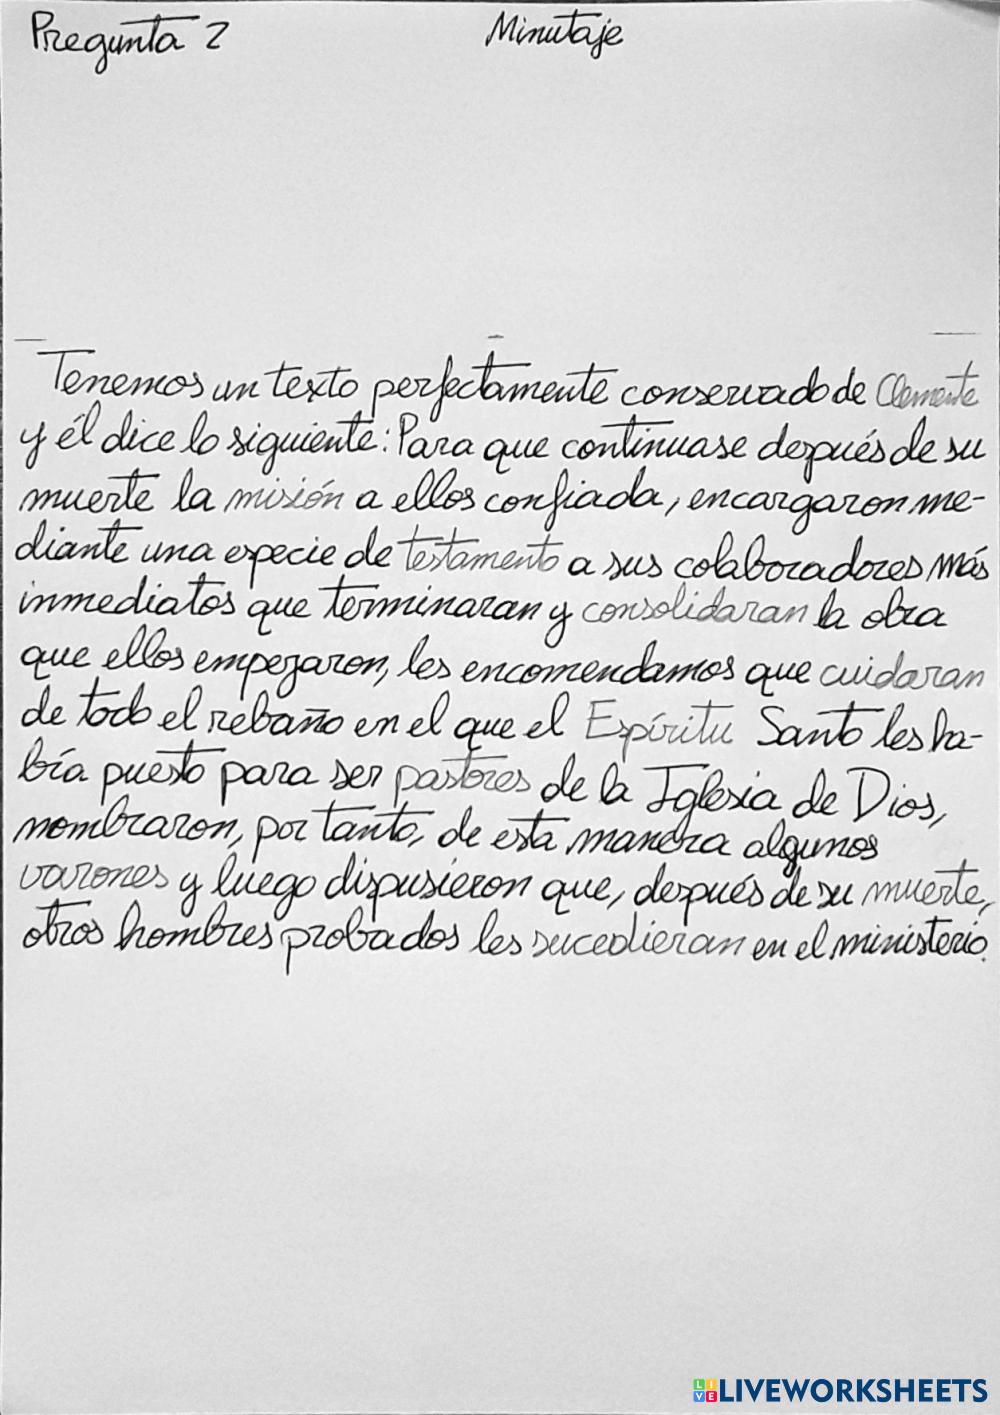 Pregunta 2 Minutaje
Tenemos un texto perfectamente conservado de Clemente
y él dice lo siguiente: Para que continuase después de su
muerte la misión a ellos confiada, encargaron me-
diante una especie de testamento a sus colaboradores más
inmediatos que terminaran y consolidaran la obra
que ellos empezaron, les encomendamos que cuidaran
de todo el rebaño en el que el Espíritu Santo les ha-
bía puesto para ser pastores de la Iglesia de Dios,
nombraron, por tanto, de esta manera algunos
varones y luego dispusieron que, después de su muerte,
otros hombres probados les sucedieran en el ministerio.
LIVEWORKSHEETS